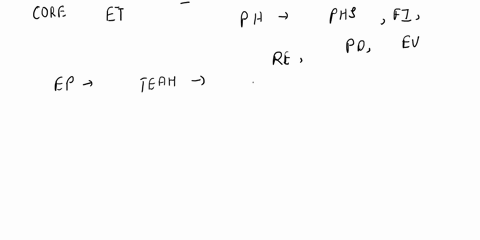 CORE ET - PH → PHS, FI,
RE, PD, EV
EP → TEAM →